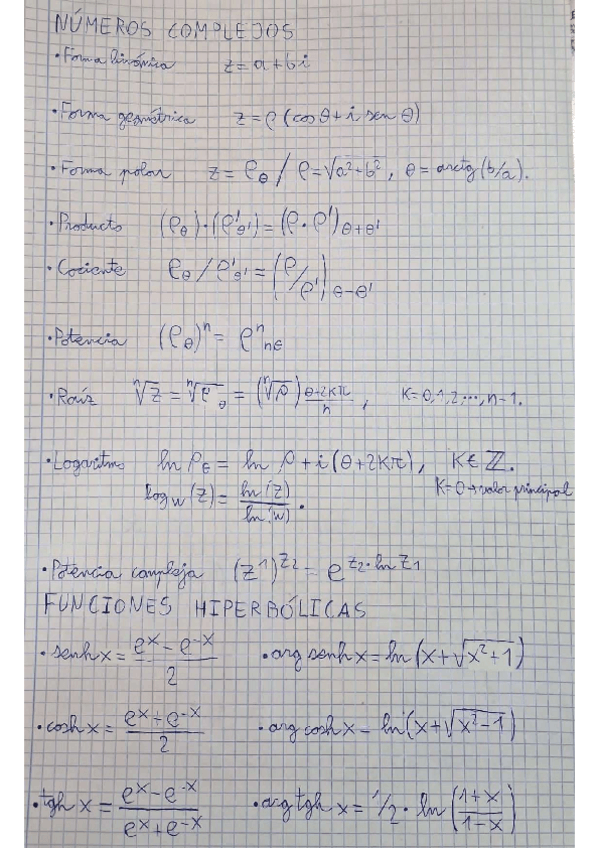 NÚMEROS COMPLEJOS
• Forma binómica z = a + bi
• Forma geométrica z = ρ (cos θ + i sen θ)
• Forma polar z = ρ_θ / ρ = √(a² + b²), θ = arctg (b/a).
• Producto (ρ_θ) · (ρ'_θ') = (ρ · ρ')_θ+θ'
• Cociente ρ_θ / ρ'_θ' = (ρ/ρ')_θ-θ'
• Potencia (ρ_θ)ⁿ = ρⁿ_nθ
• Raíz ⁿ√z = ⁿ√ρ_θ = (ⁿ√ρ)_(θ+2kπ)/n , K = 0, 1, 2, ..., n-1.
• Logaritmo ln ρ_θ = ln ρ + i(θ + 2Kπ), K ∈ ℤ.
K=0 → valor principal
log_w (z) = ln(z) / ln(w) .
• Potencia compleja (z1)^z2 = e^(z2 · ln z1)
FUNCIONES HIPERBÓLICAS
• senh x = (e^x - e^-x) / 2 • arg senh x = ln (x + √(x² + 1))
• cosh x = (e^x + e^-x) / 2 • arg cosh x = ln (x + √(x² - 1))
• tgh x = (e^x - e^-x) / (e^x + e^-x) • arg tgh x = 1/2 · ln ((1+x) / (1-x))